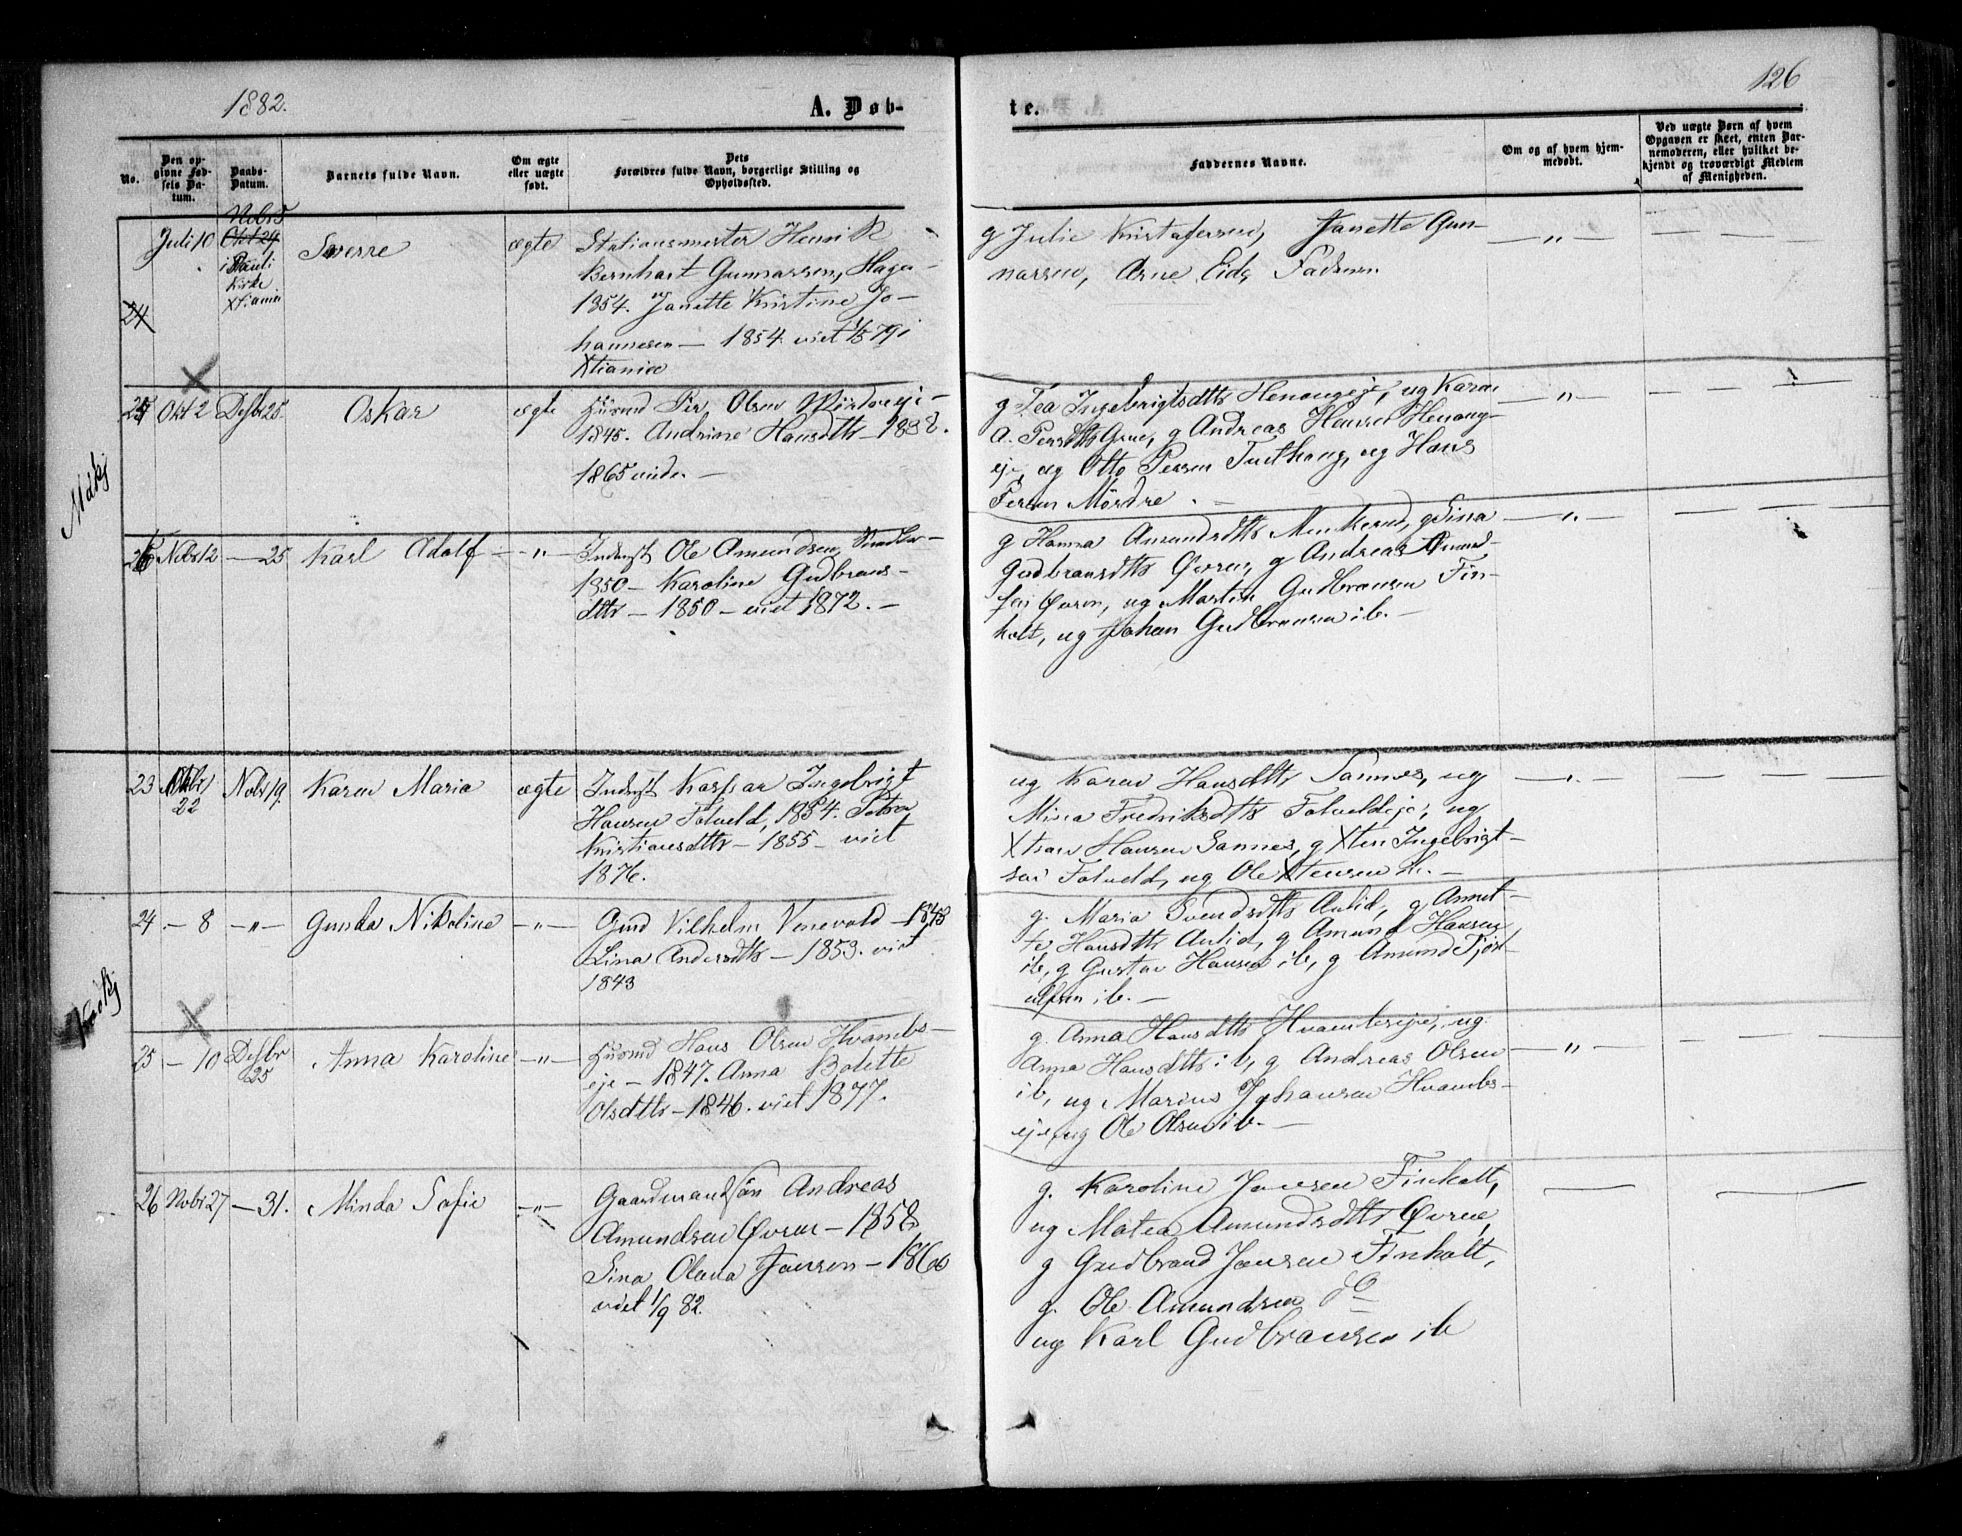 1882.
A. Døb-
te.
126
No.
Den op-
givne Fød-
sels Da-
tum.
Daabs-
Datum.
Barnets fulde Navn.
Om ægte
eller uægte
født.
Dets
Forældres fulde Navn, borgerlige Stilling og
Opholdssted.
Faddernes Navne.
Om og af hvem hjem-
medøbt.
Ved uægte Børn af hvem
Opgaven er skeet, enten Bar-
nemoderen, eller hvilket be-
kjendt og troværdigt Medlem
af Menigheden.
24
Juli 10
Nobr 5
Okt 29
i Pauli
Kirke
Xtiania
Sverre
ægte
Stationsmester Henrik
Bernhart Gunnarsen, Haga -
1854. og Janette Kristine Jo-
hannesen - 1854. viet 1/5 79 i
Xtiania
g Julie Kristofersen, Janette Gun-
narsen, Arne Eid,
— „ —
25
Okt 2
Desbr 25.
Oskar
ægte
Husmd Per Olsen Mørdreeje -
1845. Andrine Hansdtr - 1838.
1865 viede. -
g Tea Ingebrigtsdtr Henaugeje, ug Karen
A. Persdtr Grue, g Andreas Hansen Henaug-
eje, ug Otto Persen Tuethaug, ug Hans
Persen Mørdre. -
— „ —
Mökj
26
Nobr 12
— 25
Karl Adolf
— „ —
Inderst Ole Amundsen
1850 - Karoline Gudbrans-
dtr - 1850 - viet 1872. -
g Hanna Amundsdtr Menkerud, g Sina
Gudbransdtr Øvren, g Andreas Amund-
sen Øvren, ug Martin Gudbransen Fin-
holt, ug Johan Gudbransen ib. -
— „ —
23
Oktbr
22
Nobr 19.
Karen Maria
ægte
Inderst Kaspar Ingebrigt
Hansen Folveld, 1854. Petra
Kristiansdtr - 1855 - viet
1876.
ug Karen Hansdtr Sannes, ug
Mina Fredriksdtr Folveldeje, ug
Xtian Hansen Sannes, g Xten Ingebrigt-
sen Folveld, ug Ole Xtensen ib. -
— „ —
24
— 8
— „ —
Gunda Nikoline
— „ —
Gmd Vilhelm Venevold - 1848
Lina Andersdtr - 1853. viet
1843
g. Maria Svendsdtr Aulid, g Annet-
te Hansdtr Aulid, g Amund Hansen
ib, g Gustav Hansen ib, g Amund Fjøst-
ulfsen ib. -
25
— 10
Desbr
25
Anna Karoline
— „ —
Husmd Hans Olsen Hvambs-
eje - 1847. Anna Bolette
Olsdtr - 1846. viet 1877.
g. Anna Hansdtr Hvambseje, ug
Anna Hansdtr ib, g Andreas Olsen
ib, ug Marius Johansen Hvambs-
eje, ug Ole Olsen ib. -
— „ —
26
Nobr 27
— 31.
Minda Sofie
— „ —
Gaardmandsøn Andreas
Amundsen Øvren - 1858.
Sina Olava Jansen - 1860
viet 1/9 82.
g. Karoline Jansen Finholt,
ug Matea Amundsdtr Øvren,
g Gudbrand Jansen Finholt,
g. Ole Amundsen do
ug Karl Gudbransen ib